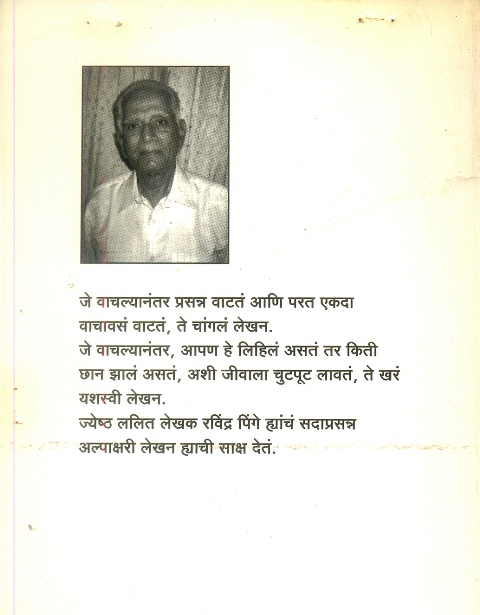 जे वाचल्यानंतर प्रसन्न वाटतं आणि परत एकदा
वाचावसं वाटतं, ते चांगलं लेखन.
जे वाचल्यानंतर, आपण हे लिहिलं असतं तर किती
छान झालं असतं, अशी जीवाला चुटपूट लावतं, ते खरं
यशस्वी लेखन.
ज्येष्ठ ललित लेखक रविंद्र पिंगे ह्यांचं सदाप्रसन्न
अल्पाक्षरी लेखन ह्याची साक्ष देतं.